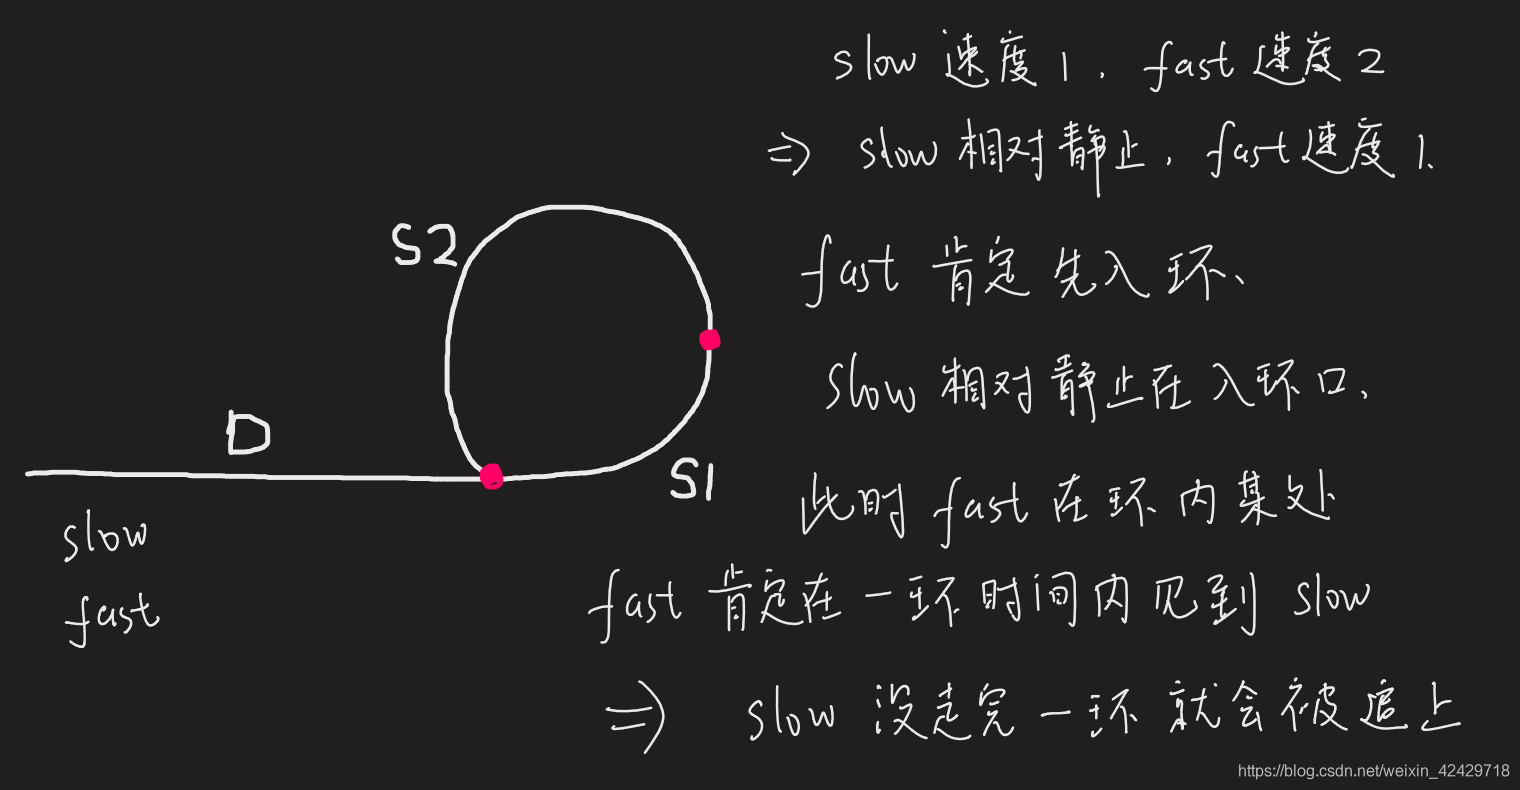 slow 速度 1, fast 速度 2
⇒ slow 相对静止, fast 速度 1.
fast 肯定先入环、
S2
slow 相对静止在入环口,
D
S1
此时 fast 在环内某处
slow
fast 肯定在一环时间内见到 slow
fast
⇒ slow 没走完一环就会被追上
https://blog.csdn.net/weixin_42429718